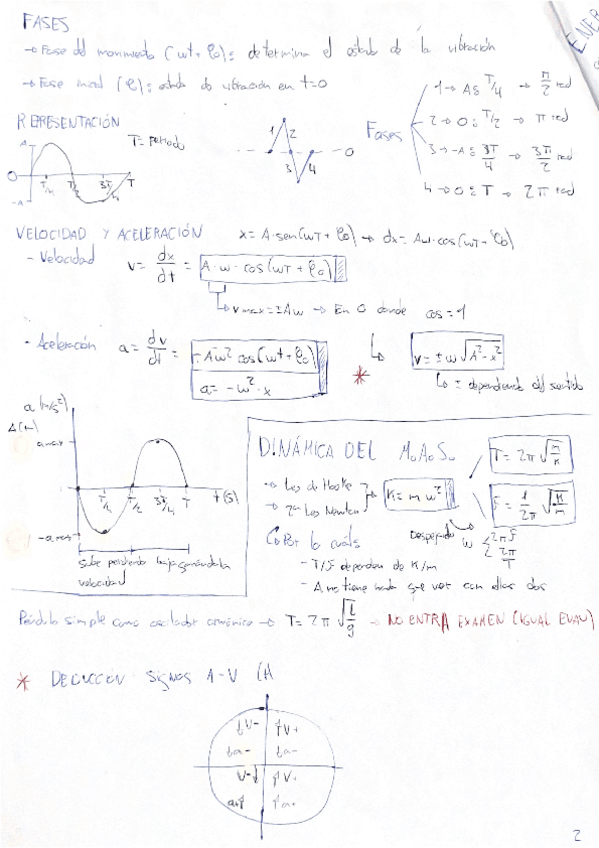 FASES
→ Fase del movimiento (ωt + φ0): determina el estado de la vibración
→ Fase inicial (φ): estado de vibración en t=0
ENER
REPRESENTACIÓN
T = Periodo
A
0
-A
T/4 T/2 3T/4 T
1 2 3 4 0
Fases
1 → A ≡ T/4 → π/2 rad
2 → 0 ≡ T/2 → π rad
3 → -A ≡ 3T/4 → 3π/2 rad
4 → 0 ≡ T → 2π rad
VELOCIDAD Y ACELERACIÓN x = A·sen(ωT + φ0) → dx = Aω·cos(ωT + φ0)
- Velocidad v = dx/dt = A·ω·cos(ωT + φ0)
↳ vmax = ±Aω → En 0 donde cos = 1
- Aceleración a = dv/dt = -Aω² cos(ωt + φ0)
a = -ω²·x
v = ±ω√(A²-x²)
*
↳ ± dependiendo del sentido
a (m/s²)
a max
-a max
T/4 T/2 3T/4 T t(s)
Sube perdiendo baja ganándola
velocidad
DINÁMICA DEL M.A.S.
→ Ley de Hooke
→ 2ª Ley Newton
K = m ω²
T = 2π √(m/K)
F = 1/2π √(K/m)
Despejando ω 2πF 2π/T
Por lo cuál:
- T/F dependen de K/m
- A no tiene nada que ver con ellas dos
Péndulo simple como oscilador armónico → T = 2π √(L/g) → NO ENTRA EXAMEN (IGUAL EVAU)
* DEDUCCIÓN SIGNOS A-V
v- v+
a- a-
v- v+
a+ a+
2